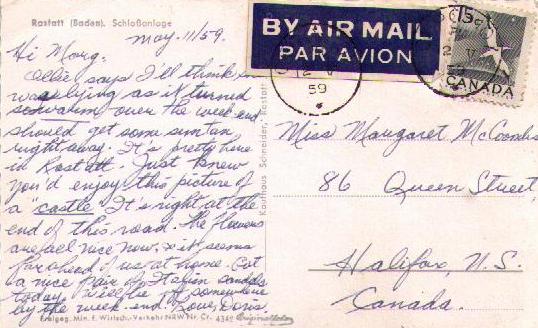 Rastatt (Baden). Schloßanlage
May. 11/59.
Hi Marg:
Ollie says I'll think
was lying as it turned
so warm over the week end
should get some suntan
right away. It's pretty here
in Rastatt. Just knew
you'd enjoy this picture of
a "castle" It's right at the
end of this road. The flowers
are nice now, & it seems
far ahead of us at home. Got
a nice pair of Italian sandals
today. somewhere
by the week end. Love, Doris
Freigeg. Min. f. Wirtsch.-Verkehr NRW Nr. Cr. 4342
Kaufhaus Schneider, Rastatt
BY AIR MAIL
PAR AVION
15¢
CANADA
12 V
59
Miss Margaret McCoombs
86 Queen Street,
Halifax, N.S.
Canada.